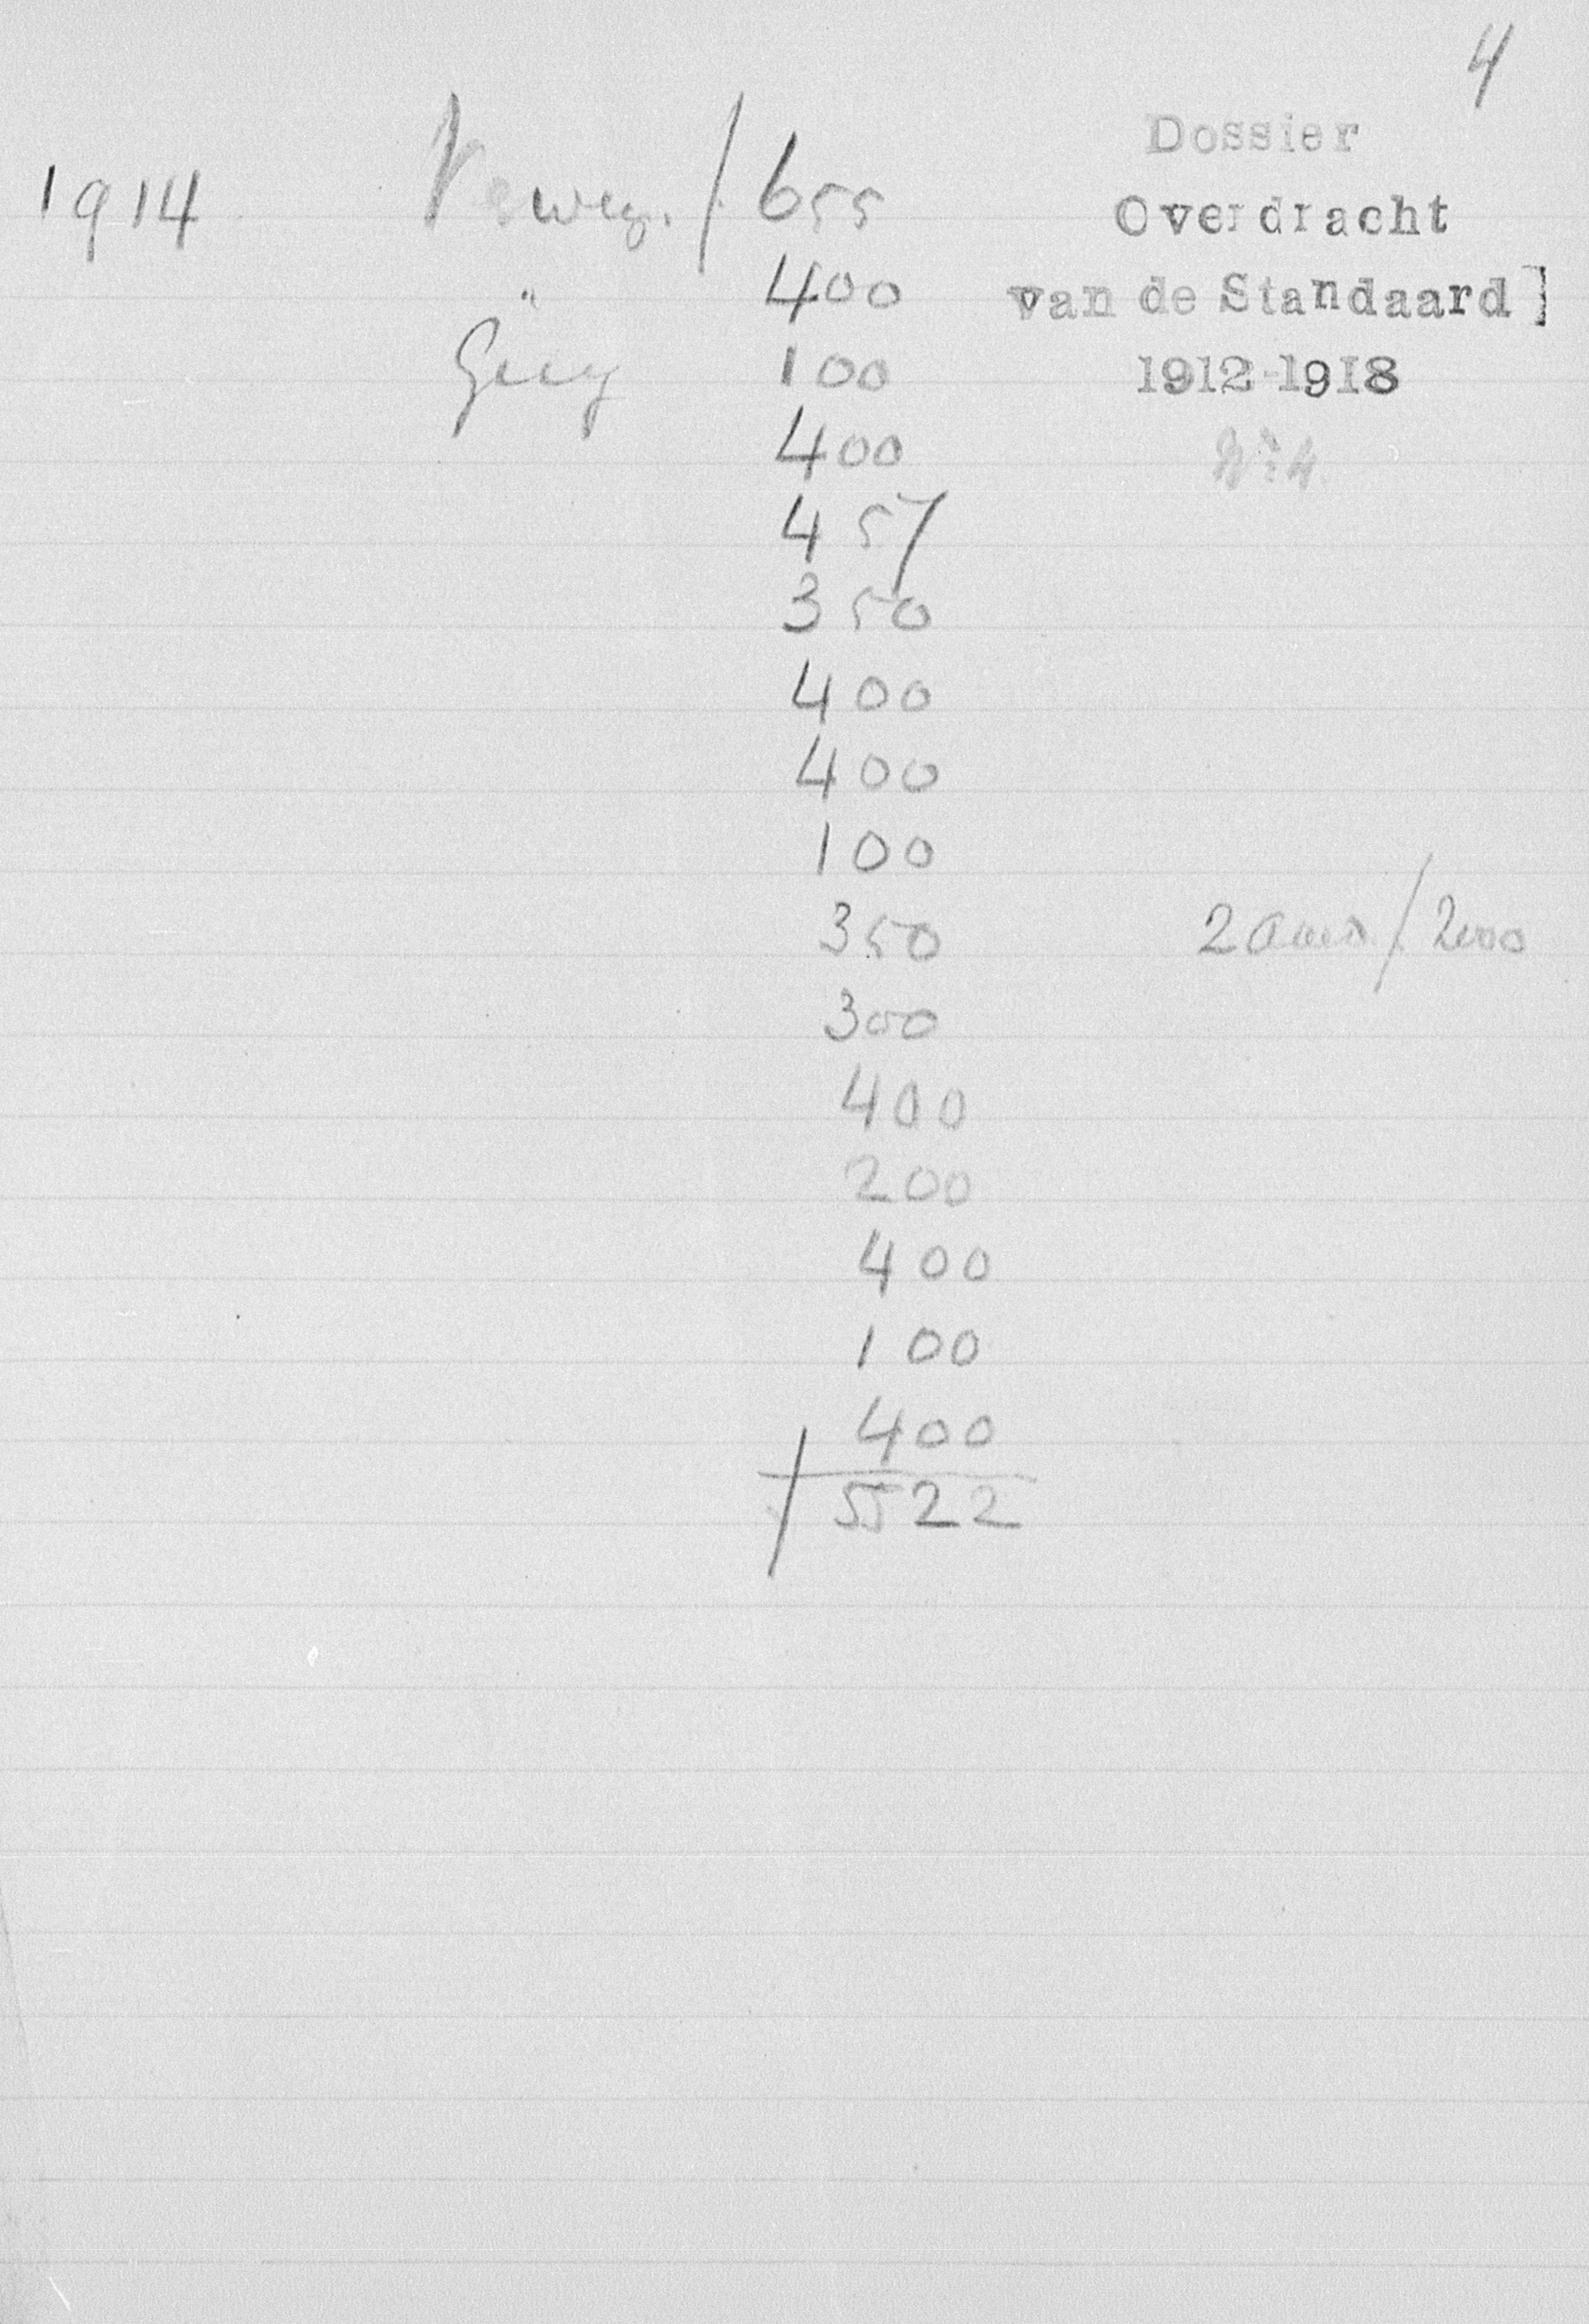 4
Dossier
1914 / 655
Overdracht
" 400
van de Standaard]
100
1912-1918
400
No 4
457
350
400
400
100
350
2 / 2000
300
400
200
400
100
400
/ 5522